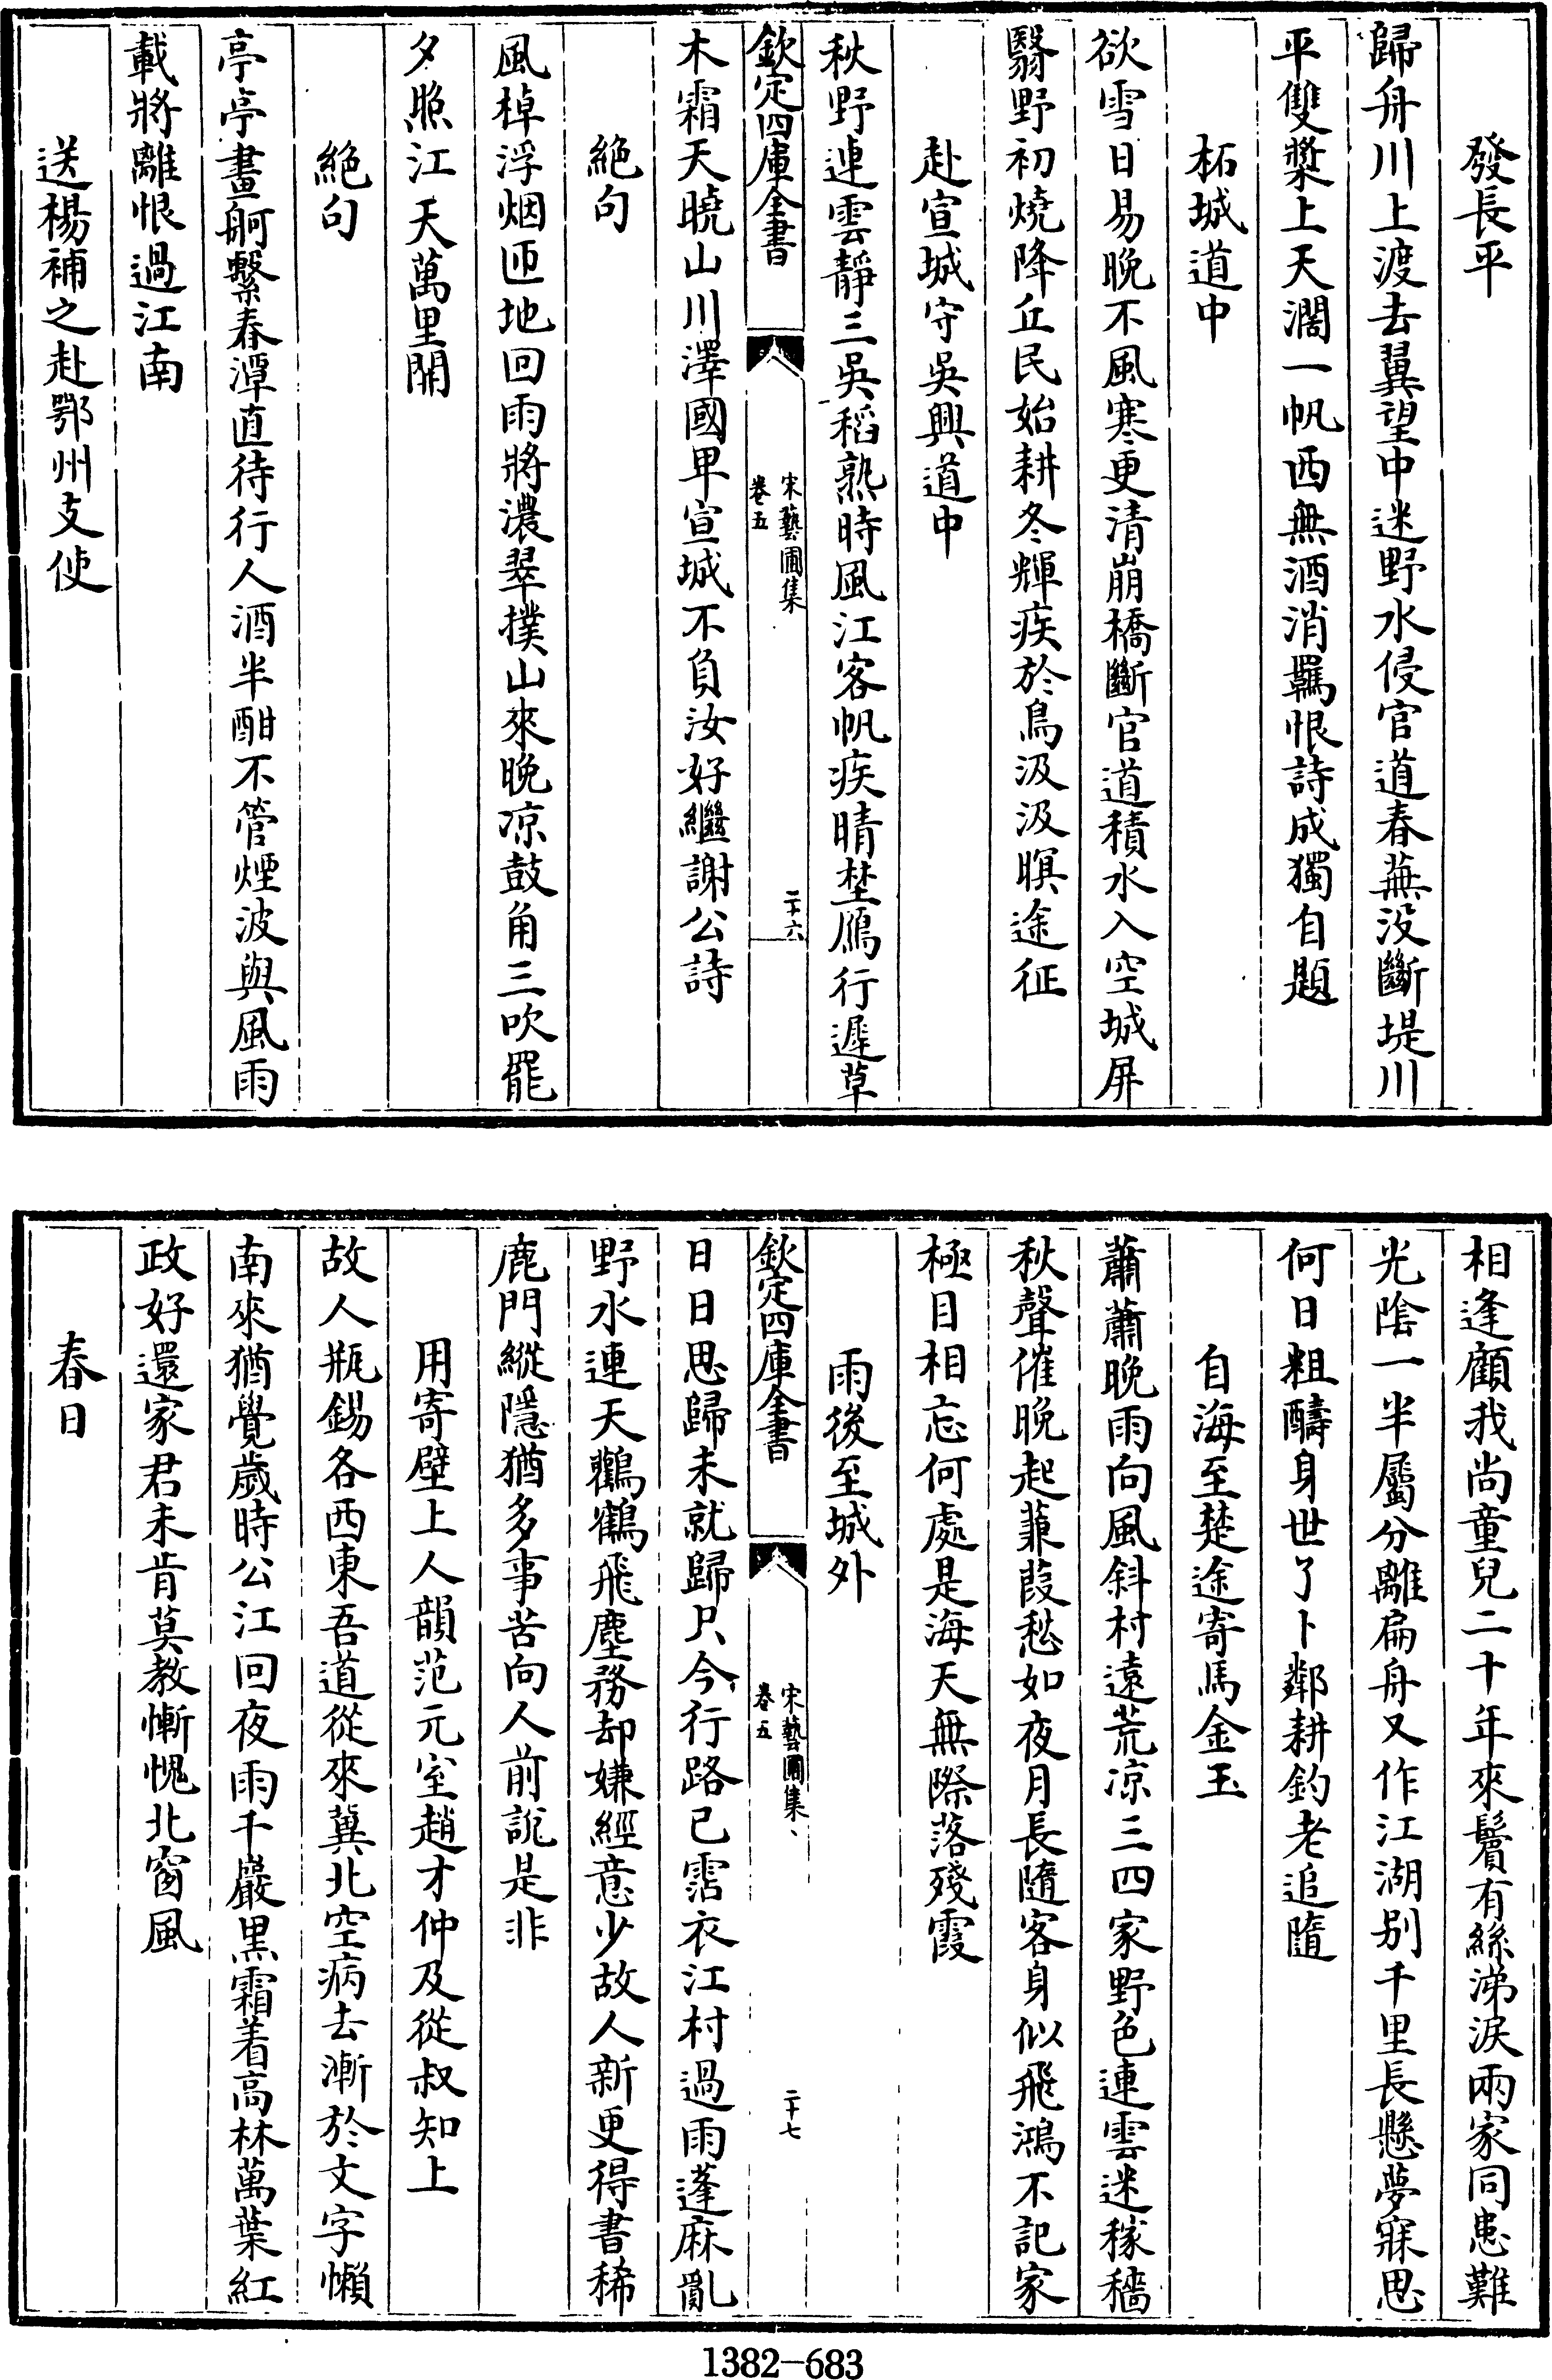 發長平
歸舟川上渡去翼望中迷野水侵官道春蕪没斷堤川
平雙槳上天濶一帆西無酒消羈恨詩成獨自題
柘城道中
欲雪日易晚不風寒更清崩橋斷官道積水入空城屏
翳野初燒降丘民始耕冬輝疾於鳥汲汲暝途征
赴宣城守吳興道中
秋野連雲靜三吳稻熟時風江客帆疾晴埜鴈行遲草
欽定四庫全書
宋藝圃集
卷五
二十六
木霜天曉山川澤國卑宣城不負汝好繼謝公詩
絶句
風棹浮烟匝地回雨將濃翠撲山來晚凉鼓角三吹罷
夕照江天萬里開
絶句
亭亭畫舸繫春潭直待行人酒半酣不管煙波與風雨
載將離恨過江南
送楊補之赴鄂州支使
相逢顧我尚童兒二十年來鬢有絲涕淚兩家同患難
光隂一半屬分離扁舟又作江湖别千里長懸夢寐思
何日粗醻身世了卜鄰耕釣老追隨
自海至楚途寄馬金玉
蕭蕭晚雨向風斜村遠荒凉三四家野色連雲迷稼穡
秋聲催晚起蒹葭愁如夜月長隨客身似飛鴻不記家
極目相忘何處是海天無際落殘霞
雨後至城外
欽定四庫全書
宋藝圃集
卷五
二十七
日日思歸未就歸只今行路已霑衣江村過雨蓬麻亂
野水連天鸛鶴飛塵務却嫌經意少故人新更得書稀
鹿門縱隱猶多事苦向人前說是非
用寄壁上人韻范元室趙才仲及從叔知上
故人瓶錫各西東吾道從來冀北空病去漸於文字懶
南來猶覺歲時公江回夜雨千巖黑霜着高林萬葉紅
政好還家君未肯莫教慚愧北窗風
春日
1382-683